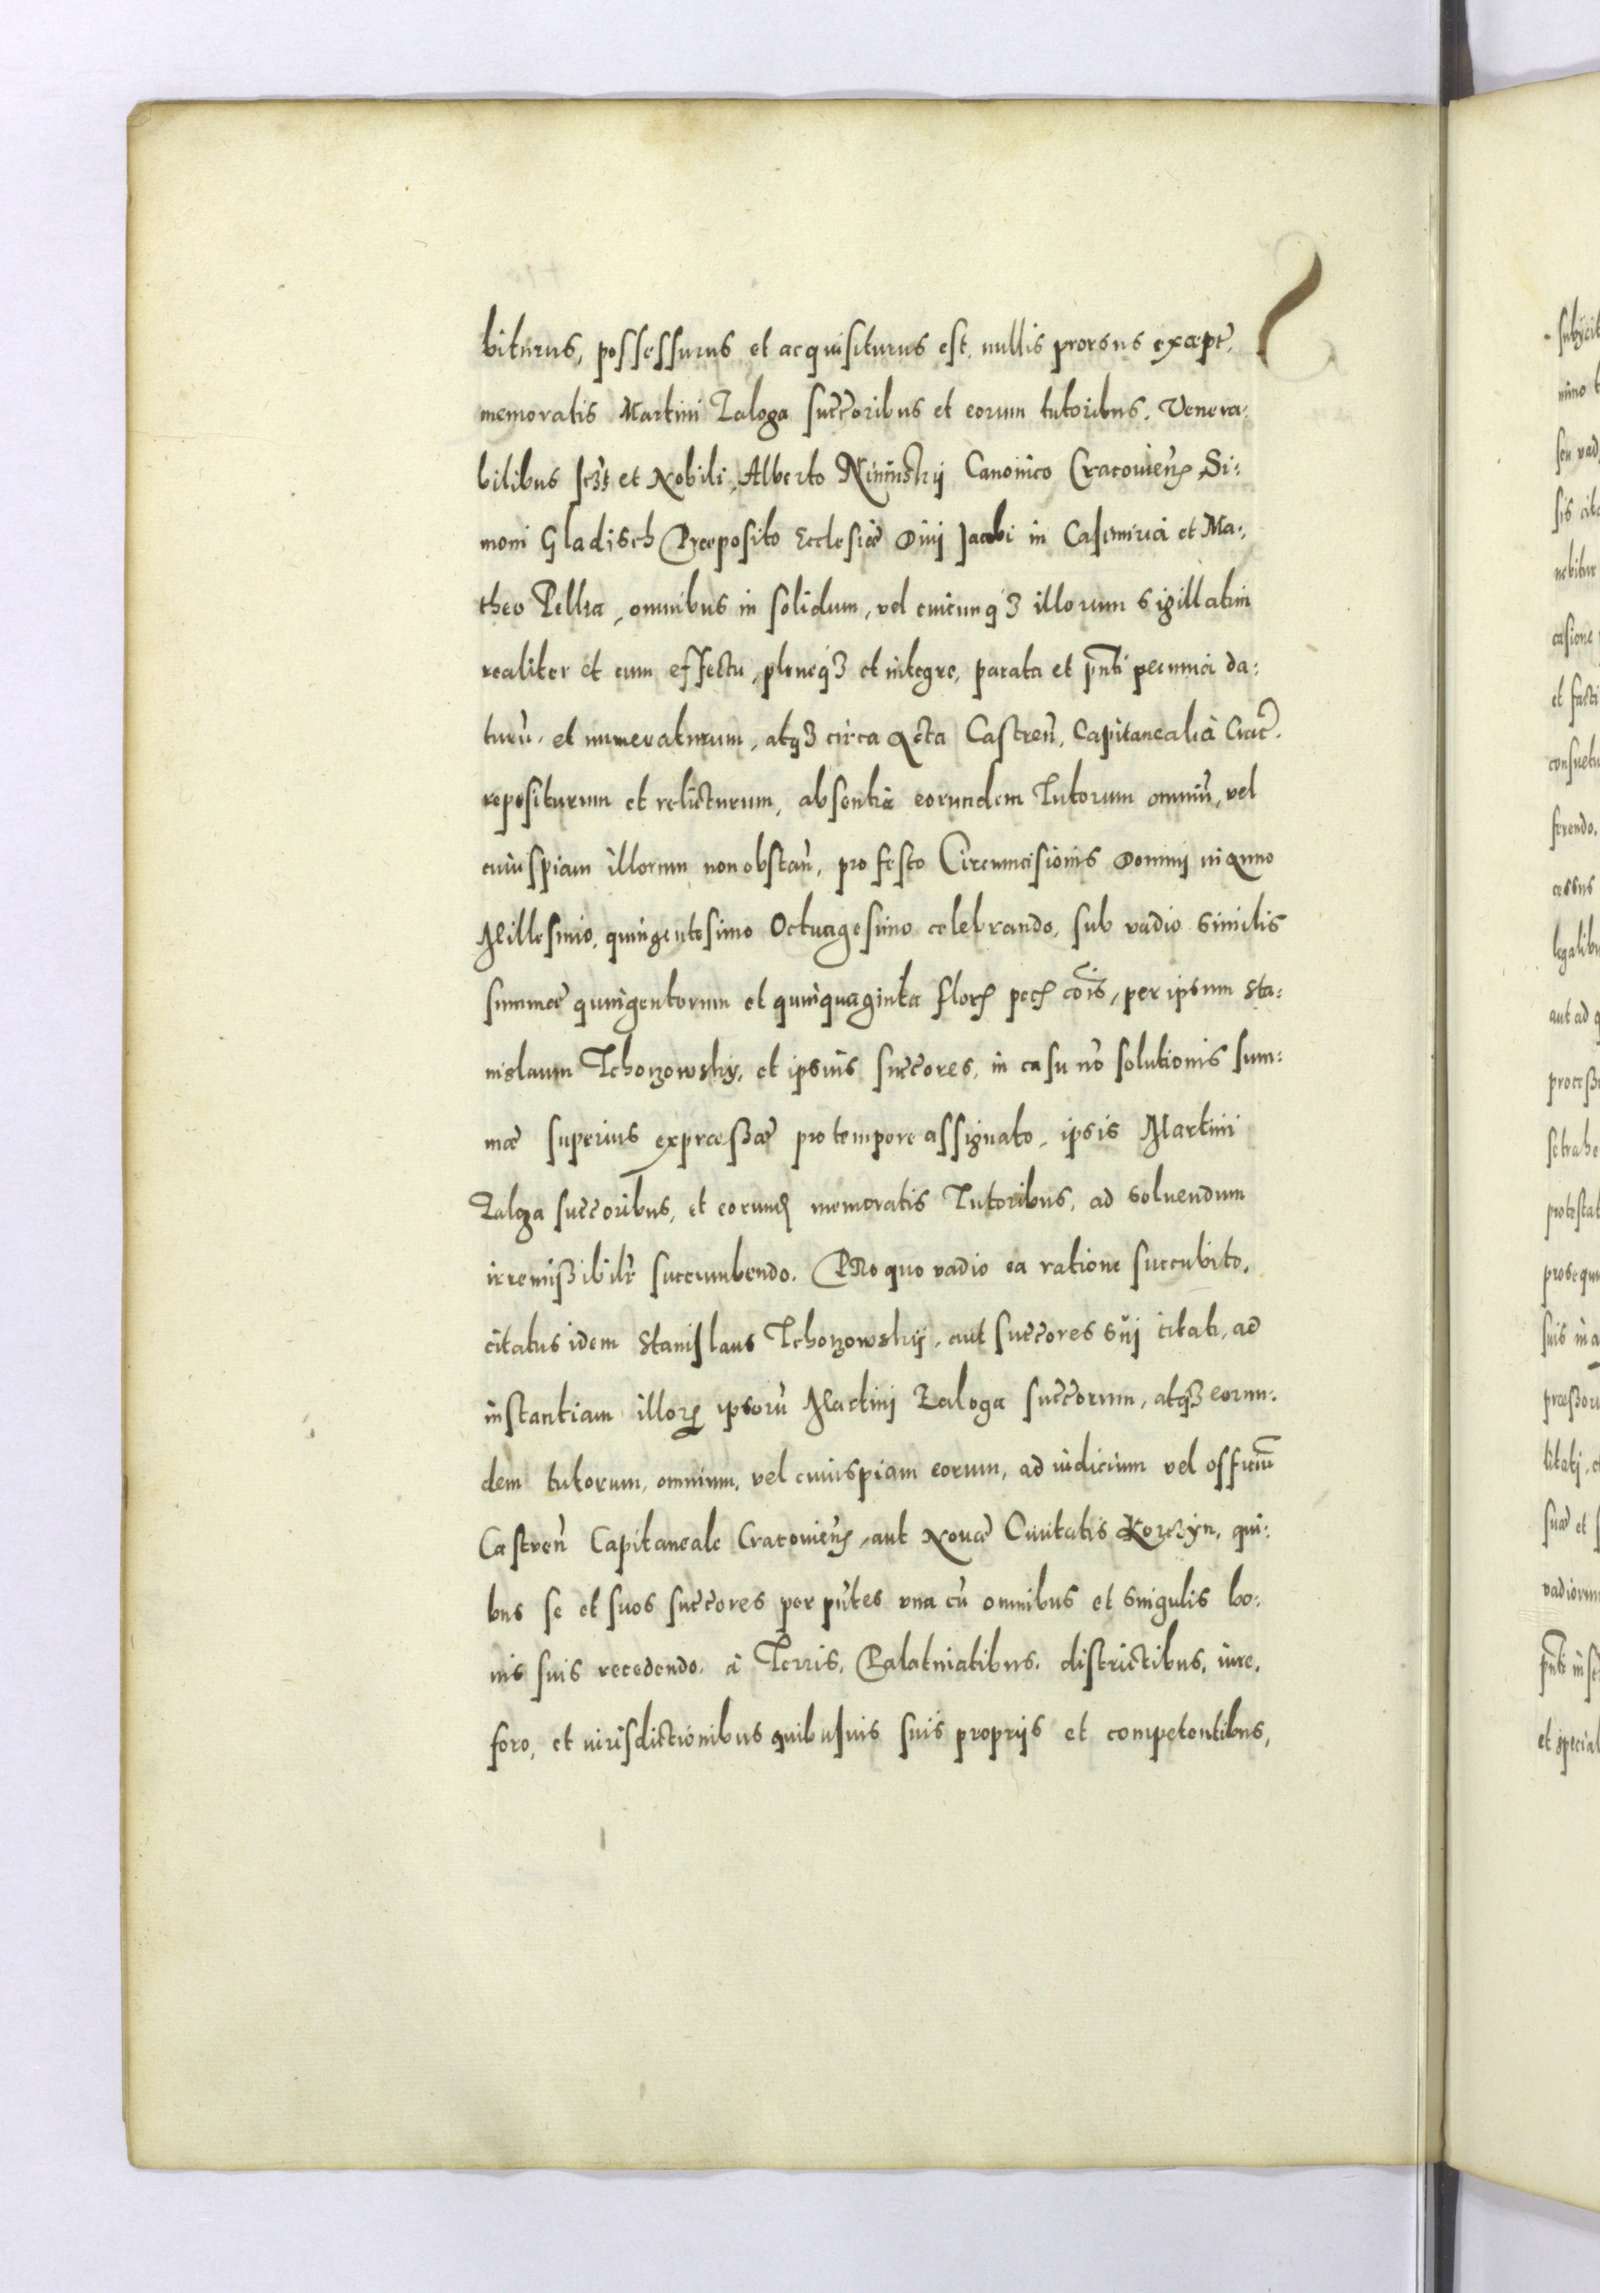 biturus, possessurus et acquisiturus est, nullis prorsus except̃,
memoratis Martini Zaloga succ̃oribus et eorum tutoribus. Venera:
bilibus scz̃ et Nobili, Alberto Nininsky Canonico Cracovieñ Si:
moni Gladisch Præposito Ecclesiæ Divi Jacobi in Casimiria et Ma:
theo Pellza, omnibus in solidum, vel cuicunq3 illorum sigillatim
realiter et cum effectu, pleneq3 et integre, parata et pñti pecunia da:
turũ et numeraturum, atq3 circa Acta Castreñ, Capitanealia Crac̃.
repositurum et relicturum, absentia eorundem Tutorum omniũ, vel
cuiuspiam illorum non obstañ, pro festo Circumcisionis Domini in Anno
Millesimo, quingentesimo Octuagesimo celebrando, sub vadio similis
summæ quingentorum et quinquaginta flor̃ pec̃ cõis, per ipsum Sta:
nislaum Tchorzowsky, et ipsius succ̃ores, in casu nõ solutionis sum:
mæ superius expræßæ pro tempore assignato, ipsis Martini
Zaloga succ̃oribus, et eorund̃ memoratis Tutoribus, ad soluendum
irremißibilr̃ succumbendo. PRo quo vadio ea ratione succubito,
citatus idem Stanislaus Tchorzowsky, aut succ̃ores sui citati, ad
instantiam illor̃ ipsorũ Martini Zaloga succ̃orum, atq3 eorun:
dem tutorum, omnium, vel cuiuspiam eorum, ad iudicium vel officiũ
Castreñ Capitaneale Cracovieñ, aut Nouæ Ciuitatis Korczyn, qui:
bus se et suos succ̃ores per pñtes vna cũ omnibus et singulis bo:
nis suis recedendo, à Terris, Palatinatibus, districtibus, iure,
foro, et iurisdictionibus quibusuis suis proprijs et competentibus,